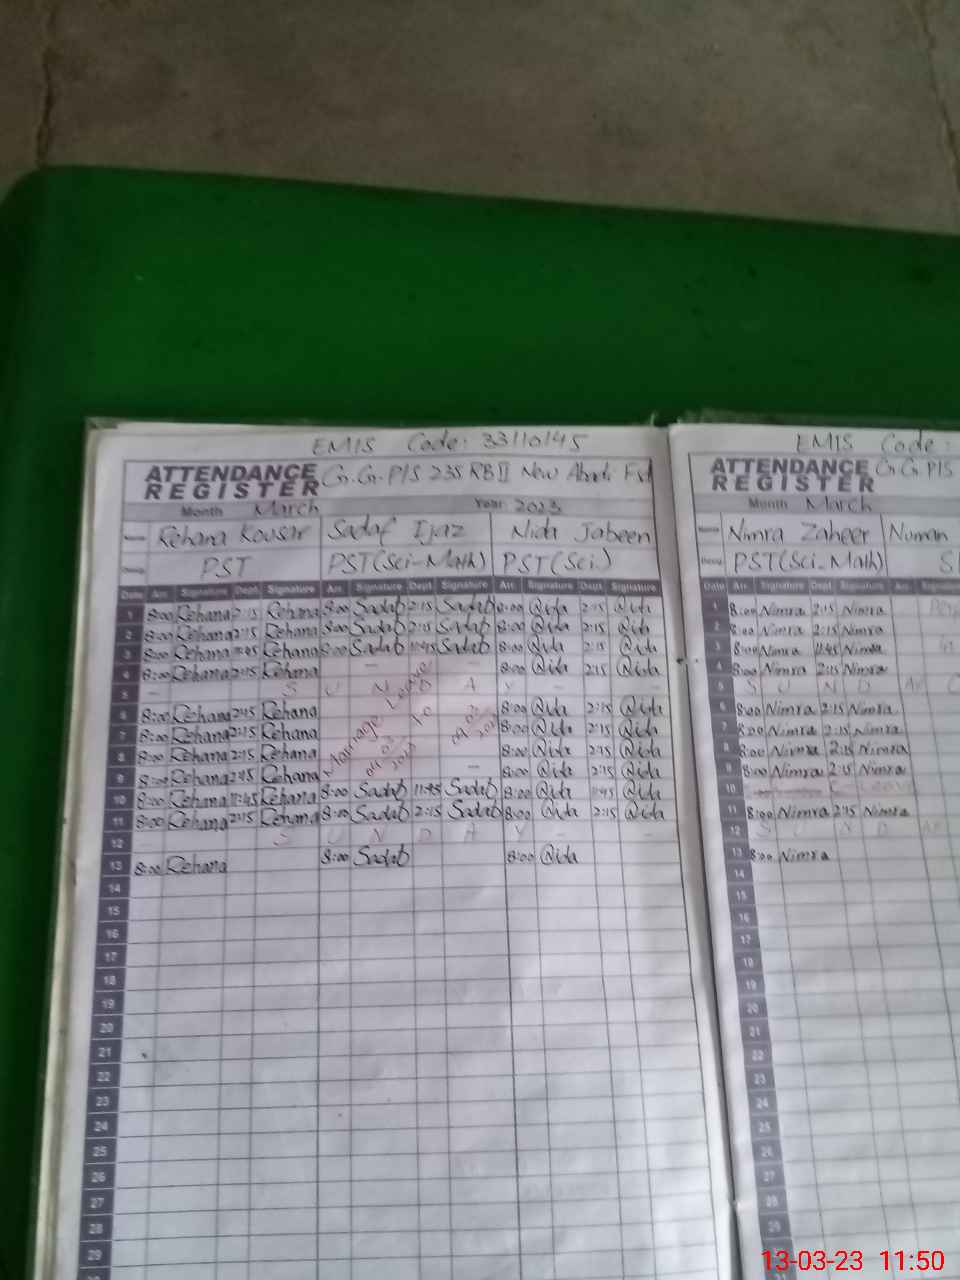 EMIS Code: 33110145
ATTENDANCE REGISTER G.G.P/S 235 RB II New Abadi Fsd
Month March Year 2023
Name Rehana Kousar Sadaf Ijaz Nida Jabeen
PST PST(Sci-Math) PST(Sci)
Date Arr. Signature Dept. Signature Arr. Signature Dept. Signature Arr. Signature Dept. Signature
1 8:00 Rehana 2:15 Rehana 8:00 Sadaf 2:15 Sadaf 8:00 Nida 2:15 Nida
2 8:00 Rehana 2:15 Rehana 8:00 Sadaf 2:15 Sadaf 8:00 Nida 2:15 Nida
3 8:00 Rehana 11:45 Rehana 8:00 Sadaf 11:45 Sadaf 8:00 Nida 2:15 Nida
4 8:00 Rehana 2:15 Rehana - - 8:00 Nida 2:15 Nida
5 - S U N D A Y - -
6 8:00 Rehana 2:15 Rehana 8:00 Nida 2:15 Nida
7 8:00 Rehana 2:15 Rehana 8:00 Nida 2:15 Nida
8 8:00 Rehana 2:15 Rehana 8:00 Nida 2:15 Nida
9 8:00 Rehana 2:15 Rehana - 8:00 Nida 2:15 Nida
Marriage Leave
04 03 2023 To 09 03 2023
10 8:00 Rehana 11:45 Rehana 8:00 Sadaf 11:45 Sadaf 8:00 Nida 11:45 Nida
11 8:00 Rehana 2:15 Rehana 8:00 Sadaf 2:15 Sadaf 8:00 Nida 2:15 Nida
12 S U N D A Y - -
13 8:00 Rehana 8:00 Sadaf 8:00 Nida
14
15
16
17
18
19
20
21
22
23
24
25
26
27
28
29
EMIS Code:
ATTENDANCE REGISTER G.G.P/S
Month March
Name Nimra Zaheer Numan
PST(Sci-Math)
Date Arr. Signature Dept. Signature Arr.
1 8:00 Nimra 2:15 Nimra
2 8:00 Nimra 2:15 Nimra
3 8:00 Nimra 11:45 Nimra
4 8:00 Nimra 2:15 Nimra
5 S U N D AY
6 8:00 Nimra 2:15 Nimra
7 8:00 Nimra 2:15 Nimra
8 8:00 Nimra 2:15 Nimra
9 8:00 Nimra 2:15 Nimra
10 Leave
11 8:00 Nimra 2:15 Nimra
12 S U N D AY
13 8:00 Nimra
14
15
16
17
18
19
20
21
22
23
24
25
26
27
28
29
13-03-23 11:50